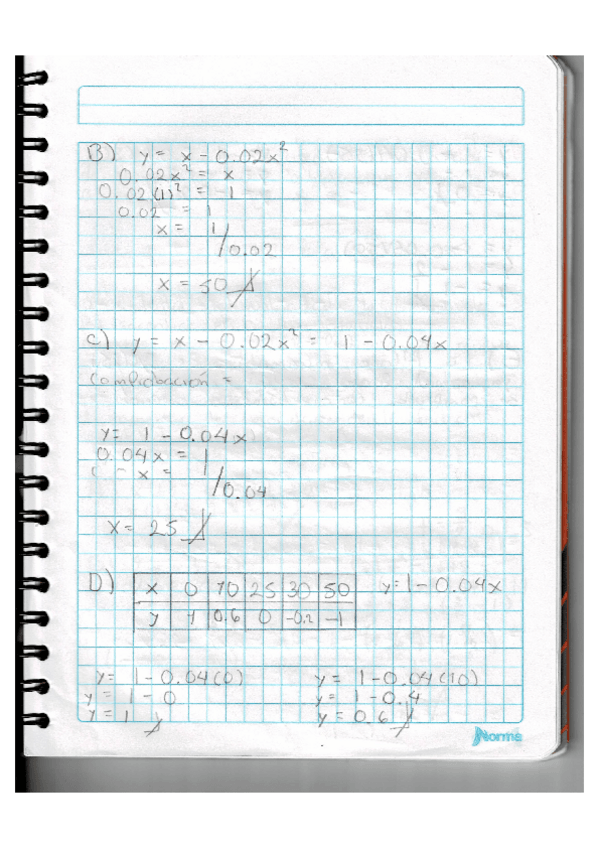 B) y = x - 0.02x²
0.02x² = x
0.02(1)² = -1
0.02 = 1
x = 1
/0.02
x = 50
C) y = x - 0.02x² = 1 - 0.04x
Comprobación =
y = 1 - 0.04x
0.04x = 1
x =
/0.04
x = 25
D) x 0 10 25 30 50 y = 1 - 0.04x
y 1 0.6 0 -0.2 -1
y = 1 - 0.04(0) y = 1 - 0.04(10)
y = 1 - 0 y = 1 - 0.4
y = 1 y = 0.6
Norma